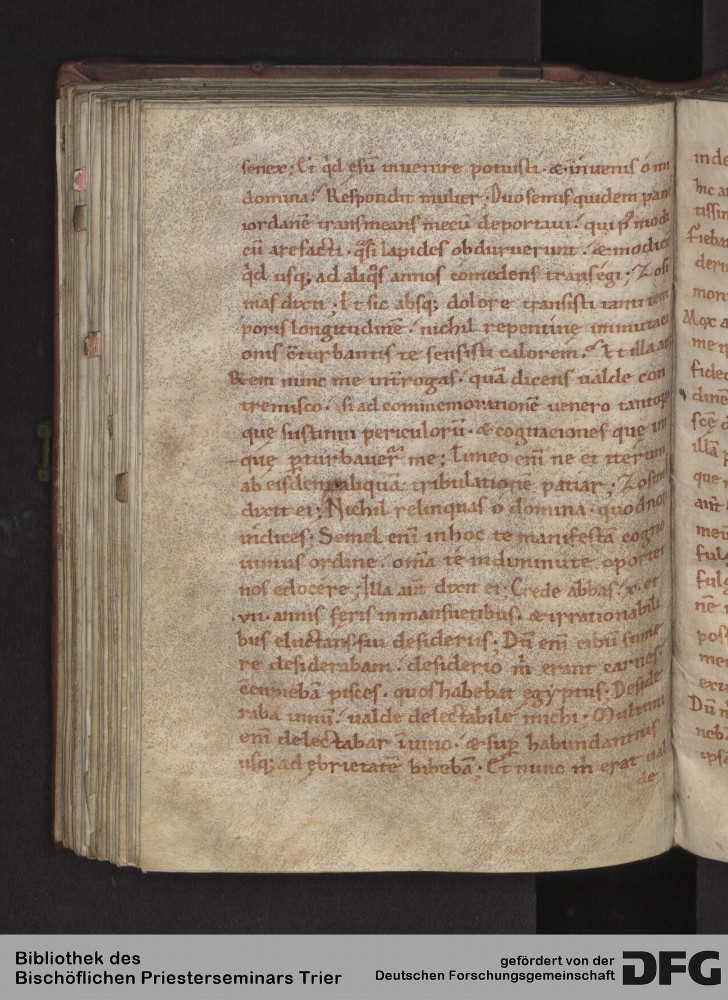 senex; Et q̇d esũ inuenire potuisti · & inuenis o mi
domina? Respondit mulier · Duo semis quidem pan
iordanẽ transmeans mecũ deportaui · qui p̾ modi
cũ arefacti · q̃si lapides obduruerunt · & modic
q̇d usq; ad aliq̇s annos comedens transegi; Zosi
mas dixit; Et sic absq; dolore transisti tanti tem
poris longitudinẽ · nichil repentinę inmutati
onis c̃turbantis te sensisti calorem? Et illa ai
Rem nunc me int̃rogas · quã dicens ualde con
tremisco · si ad commemorationẽ uenero tantoꝝ
quę sustinui periculorũ · & cogitationes quę in
que p̱turbauer̃ me; Timeo eni̅ ne et iterum
ab eisdem aliquã tribulationẽ patiar; Zosim
dixit ei; Nichil relinquas o domina · quod no
indices · Semel eni̅ in hoc te manifestã cogno
uimus ordine · om̃a te indiminute oportet
nos edocere; Illa aut̃ dixit ei · Crede abbas · x · et
· vii · annis feris inmansuetibus · & irrationabili
bus eluctans sui desideriis; Dũ eni̅ cibũ sume
re desiderabam · desiderio m̃ erant carnes
c̃cupiebã pisces · quos habebat egyptus · Deside
rabã uinũ · ualde delectabile michi · Multum
eni̅ delectabar ĩ uino · & sup̱ habundantius
usq; ad ębrietatẽ bibebã · Et nunc m̃ erat ual
de
inde
hic a
tissim
Fieba
deri
mon
Mox a
me
fide
dine
scẽ d
illã p
que
aut̃
meũ
ful
ful
nẽ
pos
me
exu
Dũ
neb
ipsa
Bibliothek des
Bischöflichen Priesterseminars Trier
gefördert von der
Deutschen Forschungsgemeinschaft
DFG